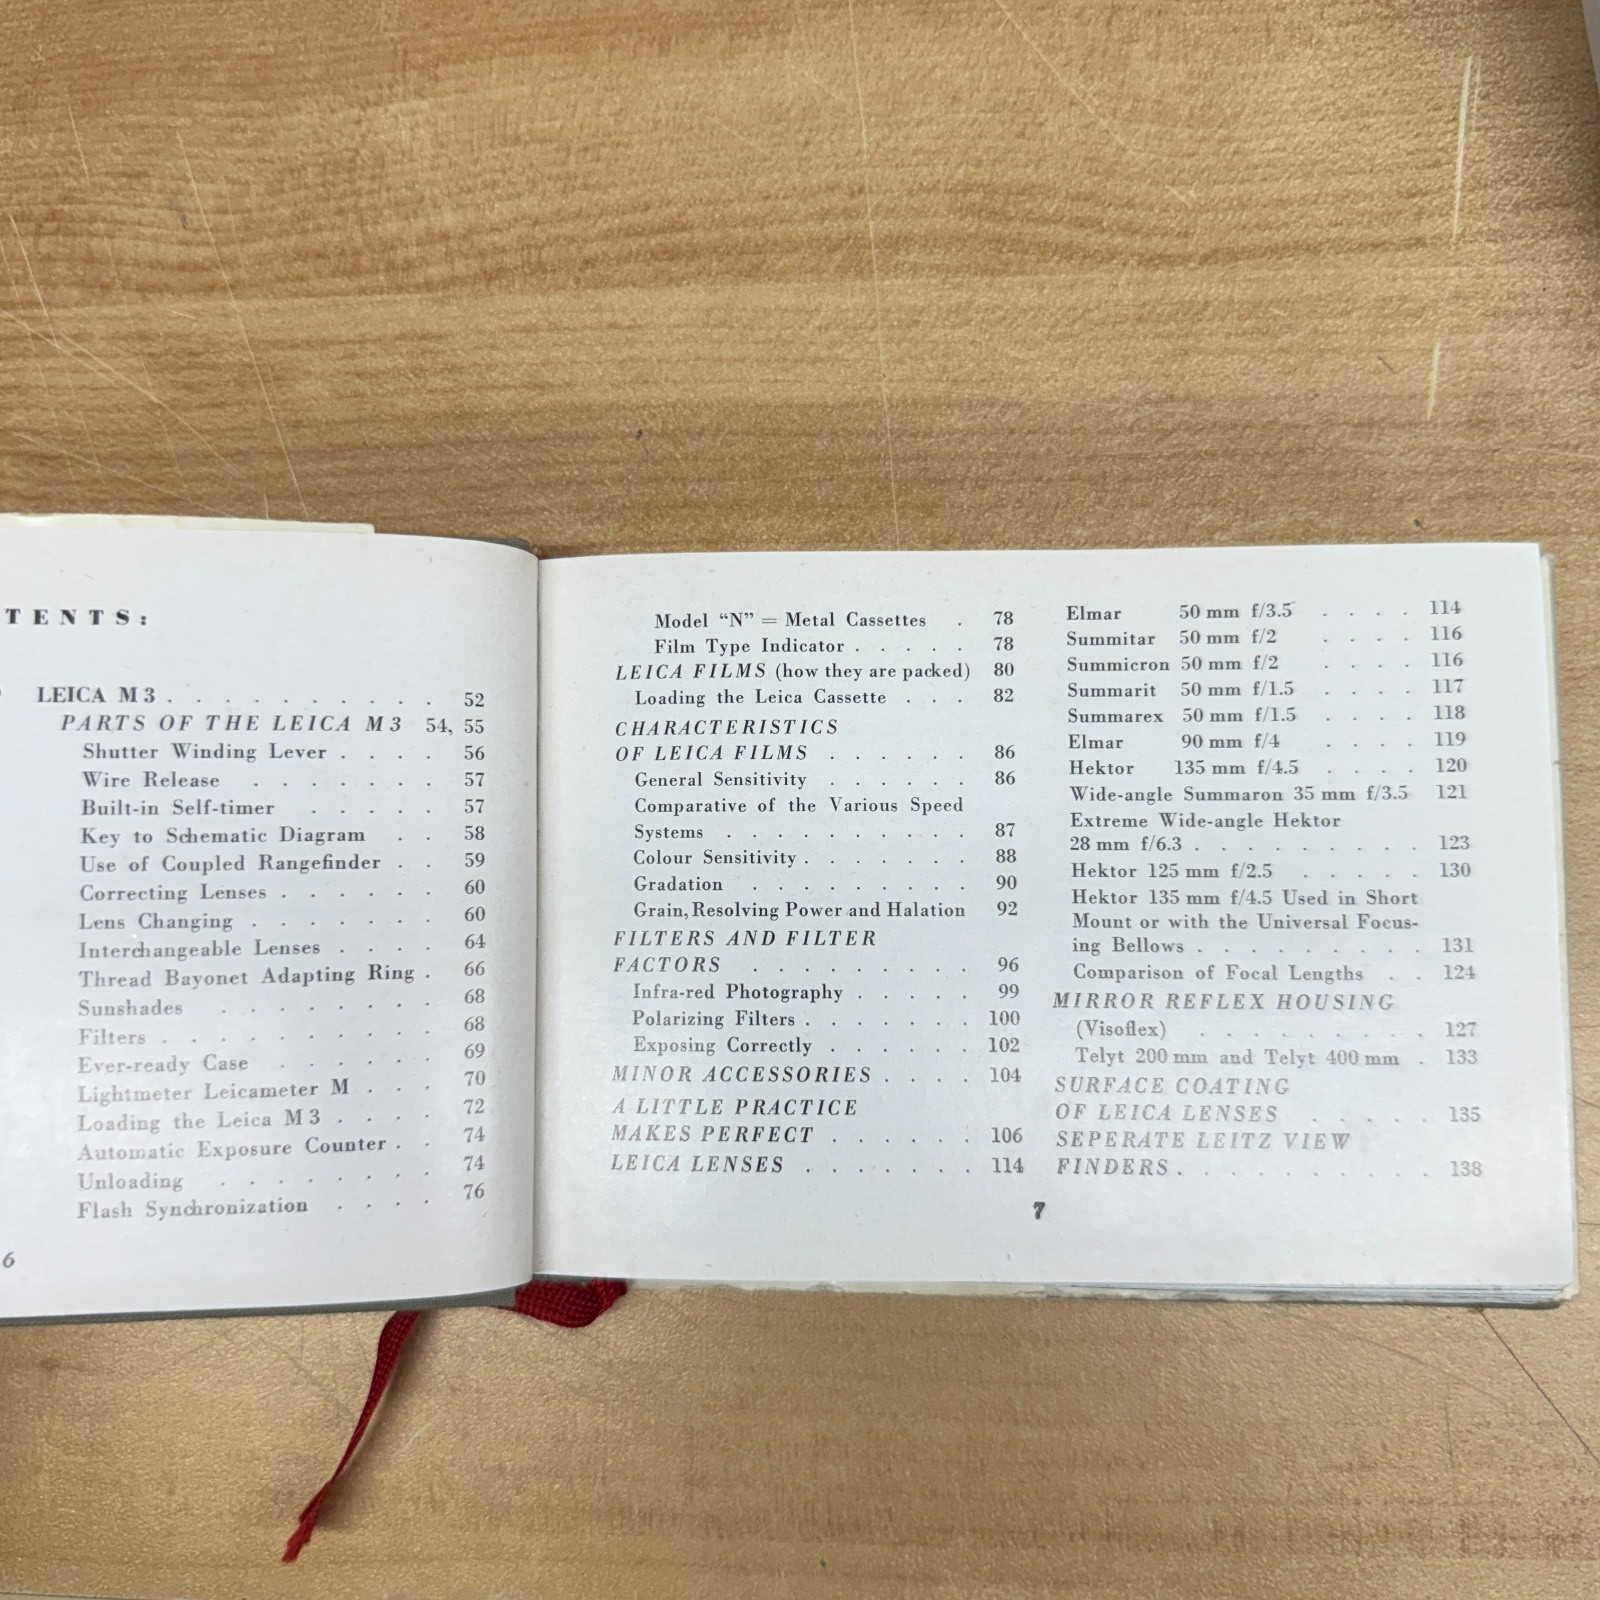 TENTS:
LEICA M3 . . . . . . . . . . 52
PARTS OF THE LEICA M3 54, 55
Shutter Winding Lever . . . . 56
Wire Release . . . . . . . 57
Built-in Self-timer . . . . . 57
Key to Schematic Diagram . . 58
Use of Coupled Rangefinder . . 59
Correcting Lenses . . . . . . 60
Lens Changing . . . . . . . 60
Interchangeable Lenses . . . . 64
Thread Bayonet Adapting Ring . 66
Sunshades . . . . . . . . 68
Filters . . . . . . . . . . 68
Ever-ready Case . . . . . . 69
Lightmeter Leicameter M . . . 70
Loading the Leica M3 . . . . 72
Automatic Exposure Counter . . 74
Unloading . . . . . . . . 74
Flash Synchronization . . . . 76
6
Model “N” = Metal Cassettes . 78
Film Type Indicator . . . . . 78
LEICA FILMS (how they are packed) 80
Loading the Leica Cassette . . . 82
CHARACTERISTICS
OF LEICA FILMS . . . . . . 86
General Sensitivity . . . . . . 86
Comparative of the Various Speed
Systems . . . . . . . . . . 87
Colour Sensitivity . . . . . . . 88
Gradation . . . . . . . . . 90
Grain, Resolving Power and Halation 92
FILTERS AND FILTER
FACTORS . . . . . . . . . 96
Infra-red Photography . . . . . 99
Polarizing Filters . . . . . . . 100
Exposing Correctly . . . . . . 102
MINOR ACCESSORIES . . . . 104
A LITTLE PRACTICE
MAKES PERFECT . . . . . . 106
LEICA LENSES . . . . . . . 114
Elmar 50 mm f/3.5 . . . . 114
Summitar 50 mm f/2 . . . . 116
Summicron 50 mm f/2 . . . . 116
Summarit 50 mm f/1.5 . . . . 117
Summarex 50 mm f/1.5 . . . . 118
Elmar 90 mm f/4 . . . . 119
Hektor 135 mm f/4.5 . . . . 120
Wide-angle Summaron 35 mm f/3.5 121
Extreme Wide-angle Hektor
28 mm f/6.3 . . . . . . . . . 123
Hektor 125 mm f/2.5 . . . . . 130
Hektor 135 mm f/4.5 Used in Short
Mount or with the Universal Focus-
ing Bellows . . . . . . . . . 131
Comparison of Focal Lengths . . 124
MIRROR REFLEX HOUSING
(Visoflex) . . . . . . . . . 127
Telyt 200 mm and Telyt 400 mm . 133
SURFACE COATING
OF LEICA LENSES . . . . . 135
SEPERATE LEITZ VIEW
FINDERS . . . . . . . . . . 138
7